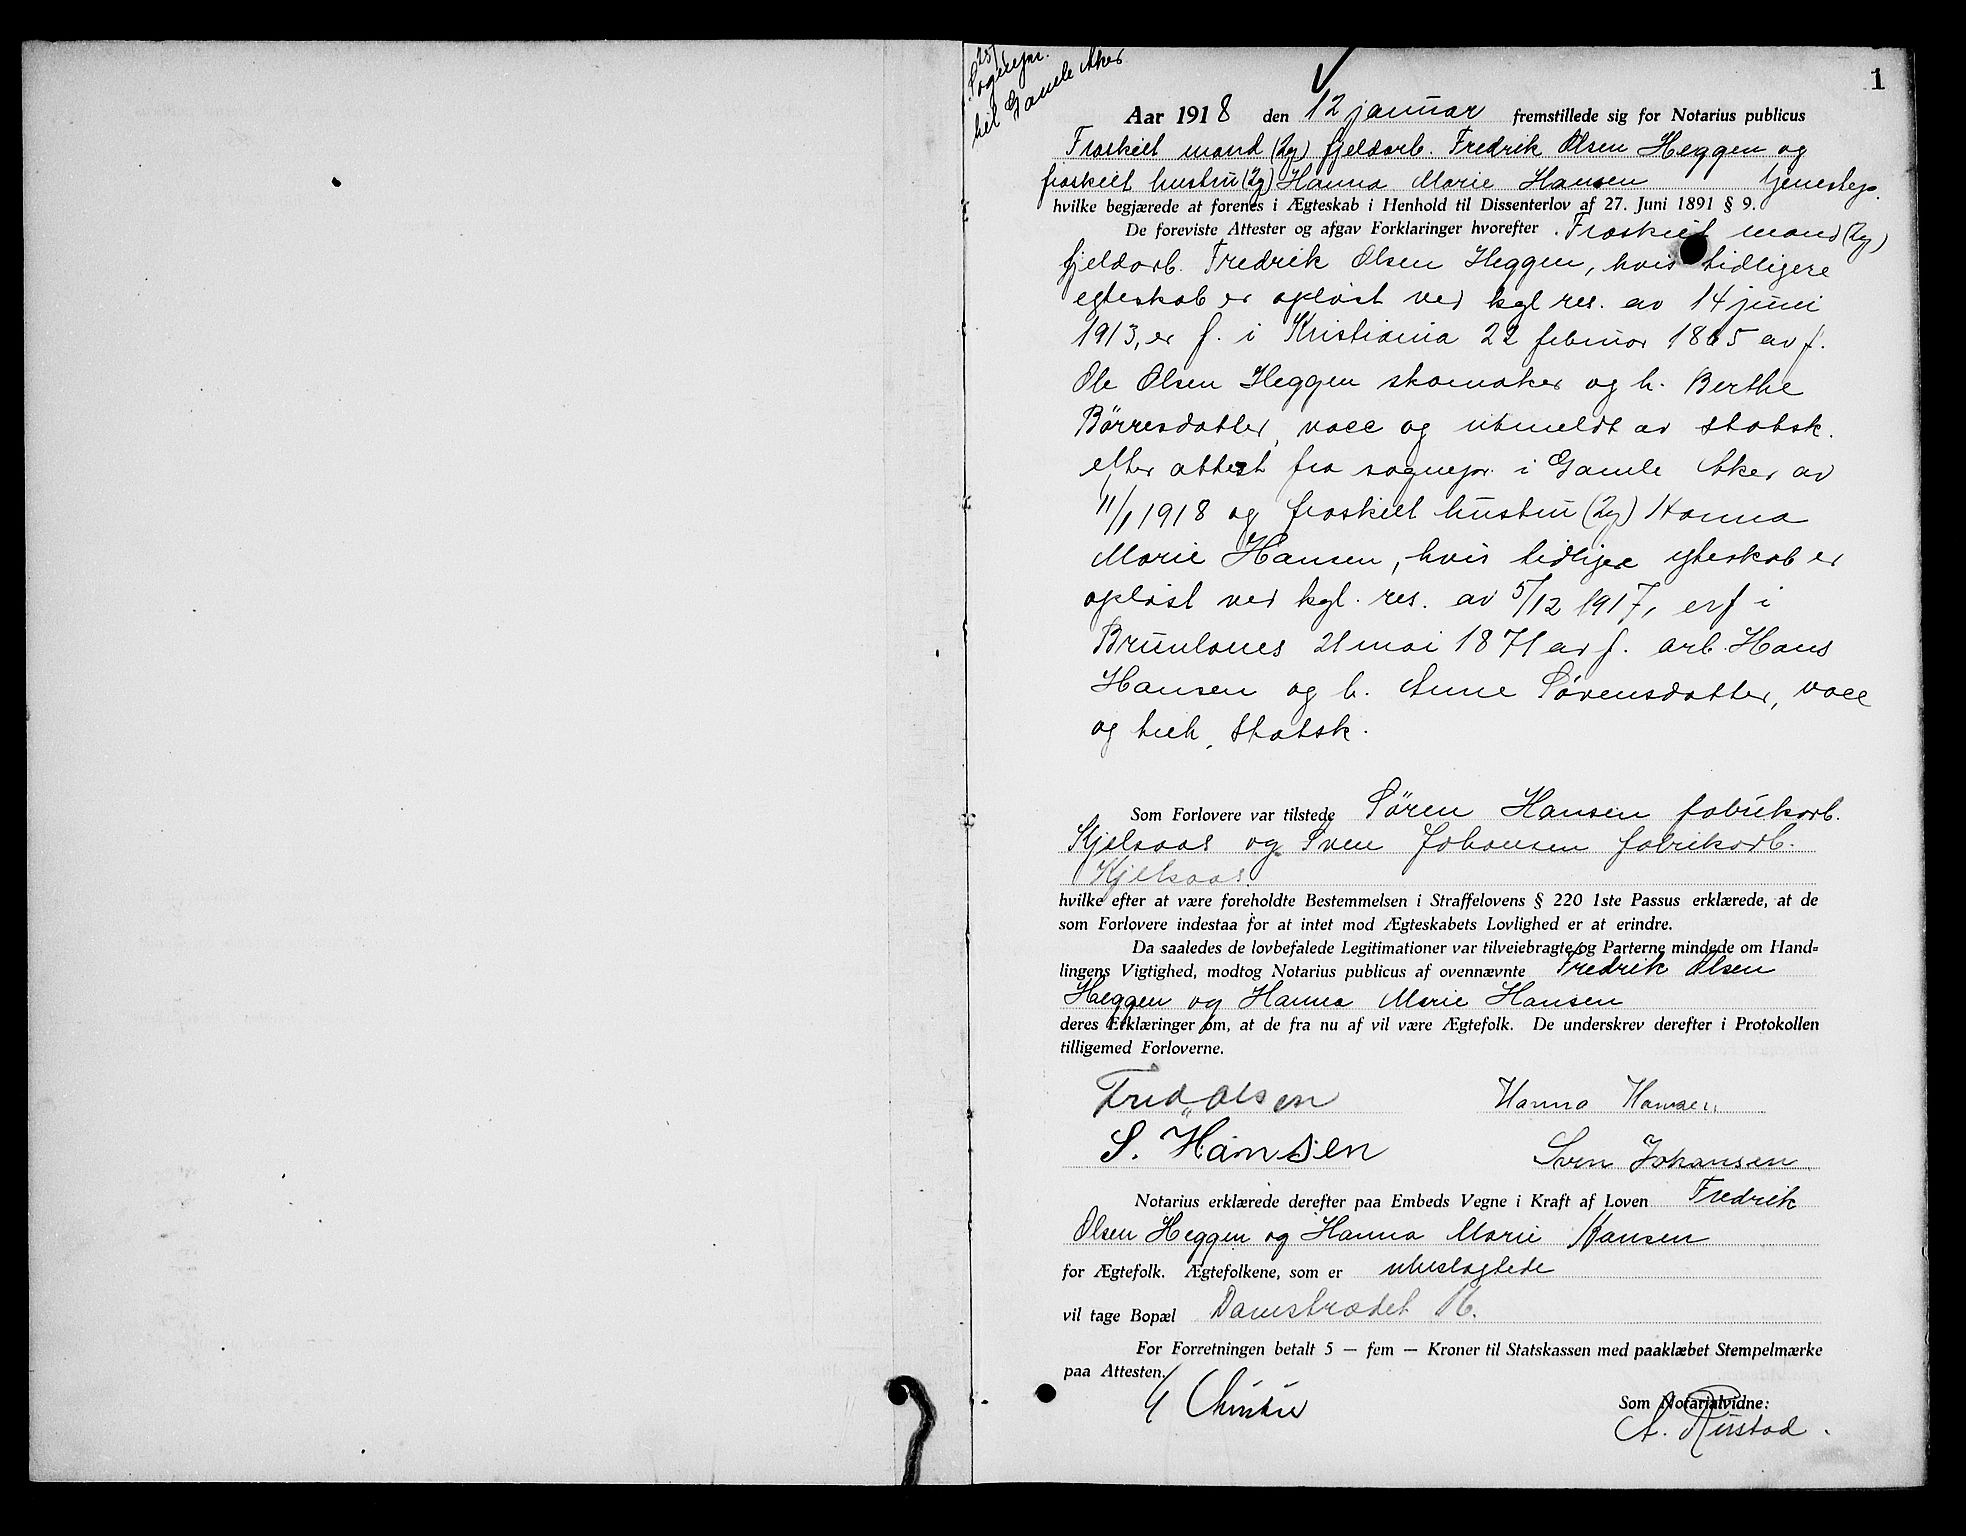 1
sognepr.
til Gamle Aker
Aar 1918 den 12 januar fremstillede sig for Notarius publicus
Fraskilt mand (2g) fjeldarb. Fredrik Olsen Heggen og
fraskilt hustru (2g) Hanna Marie Hansen tjenestep.
hvilke begjærede at forenes i Ægteskab i Henhold til Dissenterlov af 27. Juni 1891 § 9.
De foreviste Attester og afgav Forklaringer hvorefter. Fraskilt mand (2g)
fjeldarb. Fredrik Olsen Heggen, hvis tidligere
egteskab er opløst ved kgl res. av 14 juni
1913, er f. i Kristiania 22 februar 1865 av f.
Ole Olsen Heggen skomaker og h. Berthe
Børresdatter, vacc og utmeldt av statsk.
efter attest fra sognepr. i Gamle Aker av
11/1 1918 og fraskilt hustru (2g) Hanna
Marie Hansen, hvis tidligere egteskab er
opløst ved kgl. res. av 5/12 1917, er f i
Brunlanes 21 mai 1871 av f. arb. Hans
Hansen og h. Anne Sørensdatter, vacc
og tilh. Statsk.
Som Forlovere var tilstede Søren Hansen fabrikarb.
Kjelsaas og Sven Johansen fabrikarb.
Kjelsaas.
hvilke efter at være foreholdte Bestemmelsen i Straffelovens § 220 1ste Passus erklærede, at de
som Forlovere indestaa for at intet mod Ægteskabets Lovlighed er at erindre.
Da saaledes de lovbefalede Legitimationer var tilveiebragte og Parterne mindede om Hand=
lingens Vigtighed, modtog Notarius publicus af ovennævnte Fredrik Olsen
Heggen og Hanna Marie Hansen
deres Erklæringer om, at de fra nu af vil være Ægtefolk. De underskrev derefter i Protokollen
tilligemed Forloverne.
Fred Olsen Hanna Hansen
S. Hansen Sven Johansen
Notarius erklærede derefter paa Embeds Vegne i Kraft af Loven Fredrik
Olsen Heggen og Hanna Marie Hansen
for Ægtefolk. Ægtefolkene, som er ubeslagtede
vil tage Bopæl Damstrædet 16.
For Forretningen betalt 5 — fem — Kroner til Statskassen med paaklæbet Stempelmærke
paa Attesten.
Christie Som Notarialvidne:
A. Rustad.